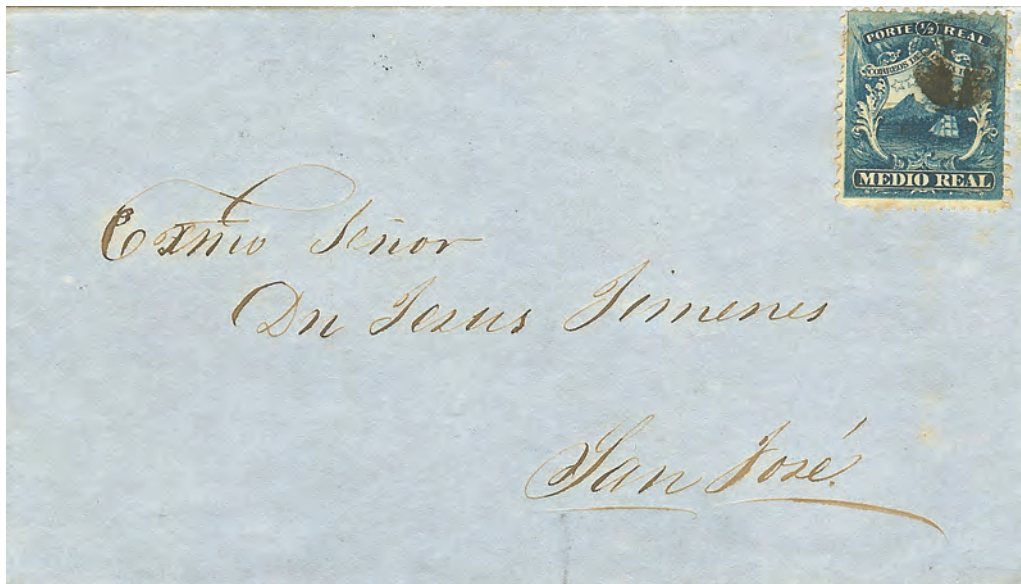 PORTE ½ REAL
CORREOS DE
MEDIO REAL
Exmo Señor
Dn Jesus Jimenes
San José.